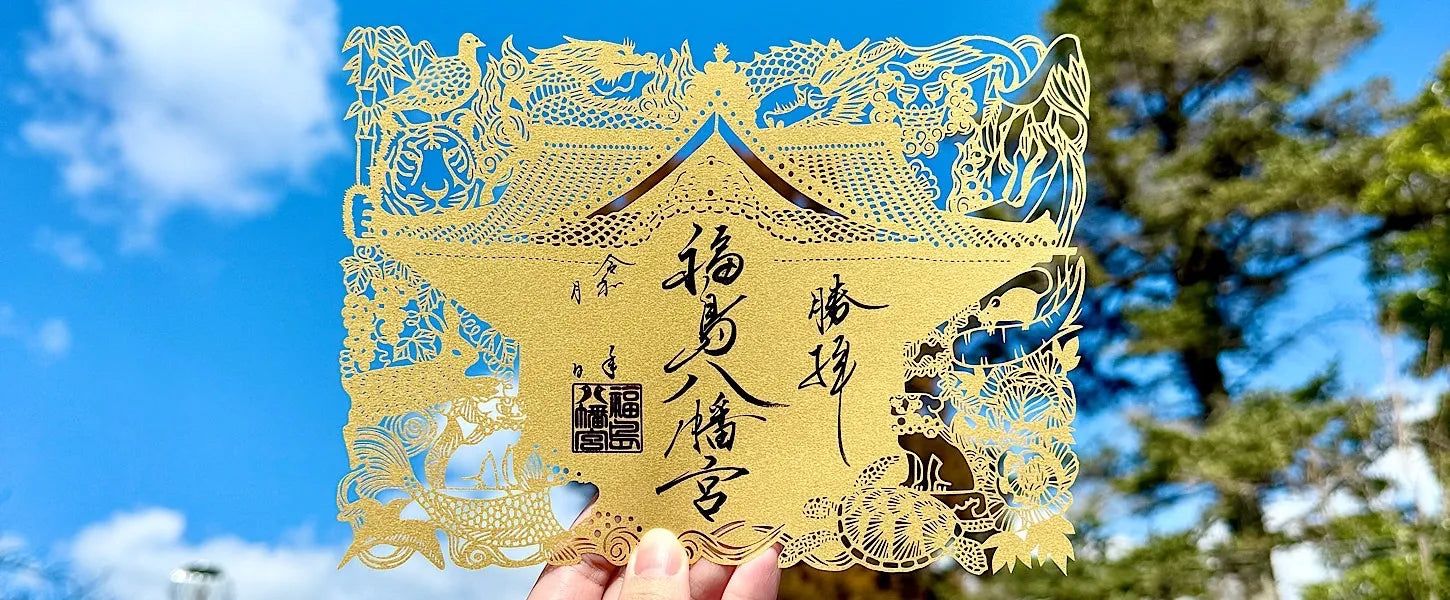 勝拝
福島八幡宮
令和 年
月 日
福島八幡宮